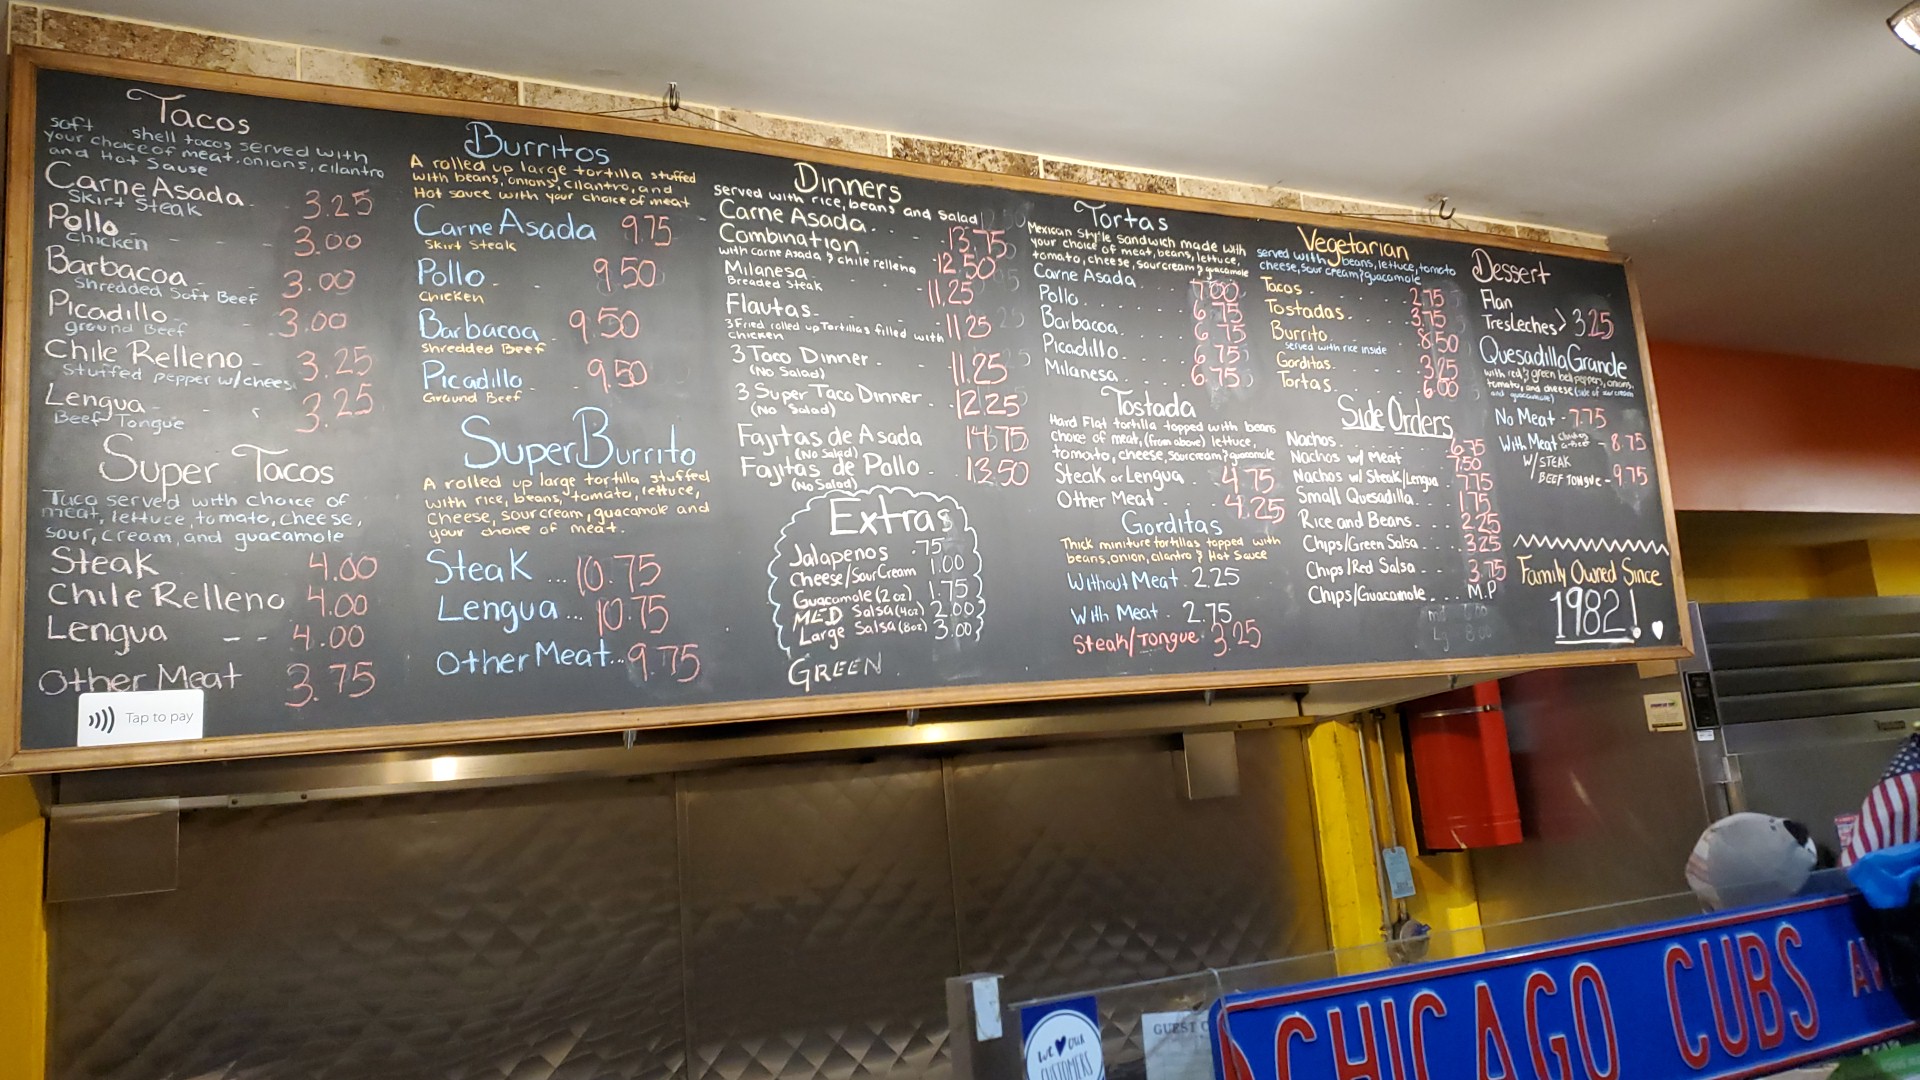 Tacos
soft shell tacos served with
your choice of meat, onions, cilantro
and Hot Sause
Carne Asada - 3.25
Skirt Steak
Pollo - - - - 3.00
chicken
Barbacoa - - 3.00
Shredded Soft Beef
Picadillo - - 3.00
ground Beef
Chile Relleno - 3.25
Stuffed pepper w/chees
Lengua - - - 3.25
Beef Tongue
Super Tacos
Taco served with choice of
meat, lettuce, tomato, cheese,
sour, cream, and guacamole
Steak 4.00
Chile Relleno 4.00
Lengua - - 4.00
Other Meat 3.75
Tap to pay
Burritos
A rolled up large tortilla stuffed
with beans, onions, cilantro, and
Hot sauce with your choice of meat
Carne Asada 9.75
Skirt Steak
Pollo - - 9.50
Chicken
Barbacoa 9.50
Shredded Beef
Picadillo - - 9.50
Ground Beef
Super Burrito
A rolled up large tortilla stuffed
with rice, beans, tomato, lettuce,
Cheese, sour cream, guacamole and
your choice of meat.
Steak ... 10.75
Lengua ... 10.75
Other Meat... 9.75
Dinners
served with rice, beans and salad
Carne Asada . . . 13.75
Combination . . . 12.50
with carne asada & chile relleno
Milanesa 11.25
Breaded Steak
Flautas 11.25
3 Fried rolled up Tortillas filled with
chicken
3 Taco Dinner . . . 11.25
(No Salad)
3 Super Taco Dinner . 12.25
(No Salad)
Fajitas de Asada 14.75
(No Salad)
Fajitas de Pollo . 13.50
(No Salad)
Extras
Jalapenos .75
Cheese/Sour Cream 1.00
Guacamole (2 oz) 1.75
MED Salsa (4oz) 2.00
Large Salsa (8oz) 3.00
GREEN
Tortas
Mexican Style Sandwich made with
your choice of meat, beans, lettuce,
tomato, cheese, sour cream & guacamole
Carne Asada . . . 7.00
Pollo . . . 6.75
Barbacoa . . . 6.75
Picadillo . . . 6.75
Milanesa . . . 6.75
Tostada
Hard Flat tortilla topped with beans
choice of meat, (from above) lettuce,
tomato, cheese, sour cream & guacamole
Steak or Lengua . . 4.75
Other Meat . . . 4.25
Gorditas
Thick miniture tortillas topped with
beans, onion, cilantro & Hot Sauce
Without Meat . 2.25
With Meat . 2.75
Steak/Tongue . 3.25
Vegetarian
served with beans, lettuce, tomato
cheese, sour cream & guacamole
Tacos . . . 2.75
Tostadas . . . 3.75
Burrito . . . 8.50
served with rice inside
Gorditas . . . 3.25
Tortas . . . 6.00
Side Orders
Nachos . . . 6.75
Nachos w/ Meat 7.50
Nachos w/ Steak/Lengua . 7.75
Small Quesadilla . . . 1.75
Rice and Beans . . . 2.25
Chips/Green Salsa . . . 3.25
Chips/Red Salsa . . 3.75
Chips/Guacamole . . . M.P
Dessert
Flan
Tres Leches > 3.25
Quesadilla Grande
with red & green bell peppers, onions,
tomato, and cheese (side of sour cream
and guacamole)
No Meat - 7.75
With Meat - 8.75
W/STEAK
BEEF TONGUE - 9.75
Family Owned Since
1982!
WE OUR
CUSTOMERS
GUEST
CHICAGO CUBS AV